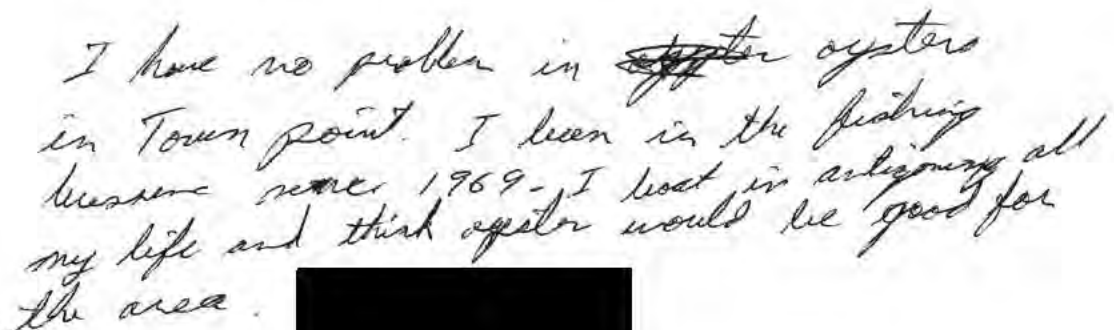 I have no problem in oysters
in Town point. I been in the fishing
bussnene since 1969 - I boat in antigoning all
my life and think oyster would be good for
the area.